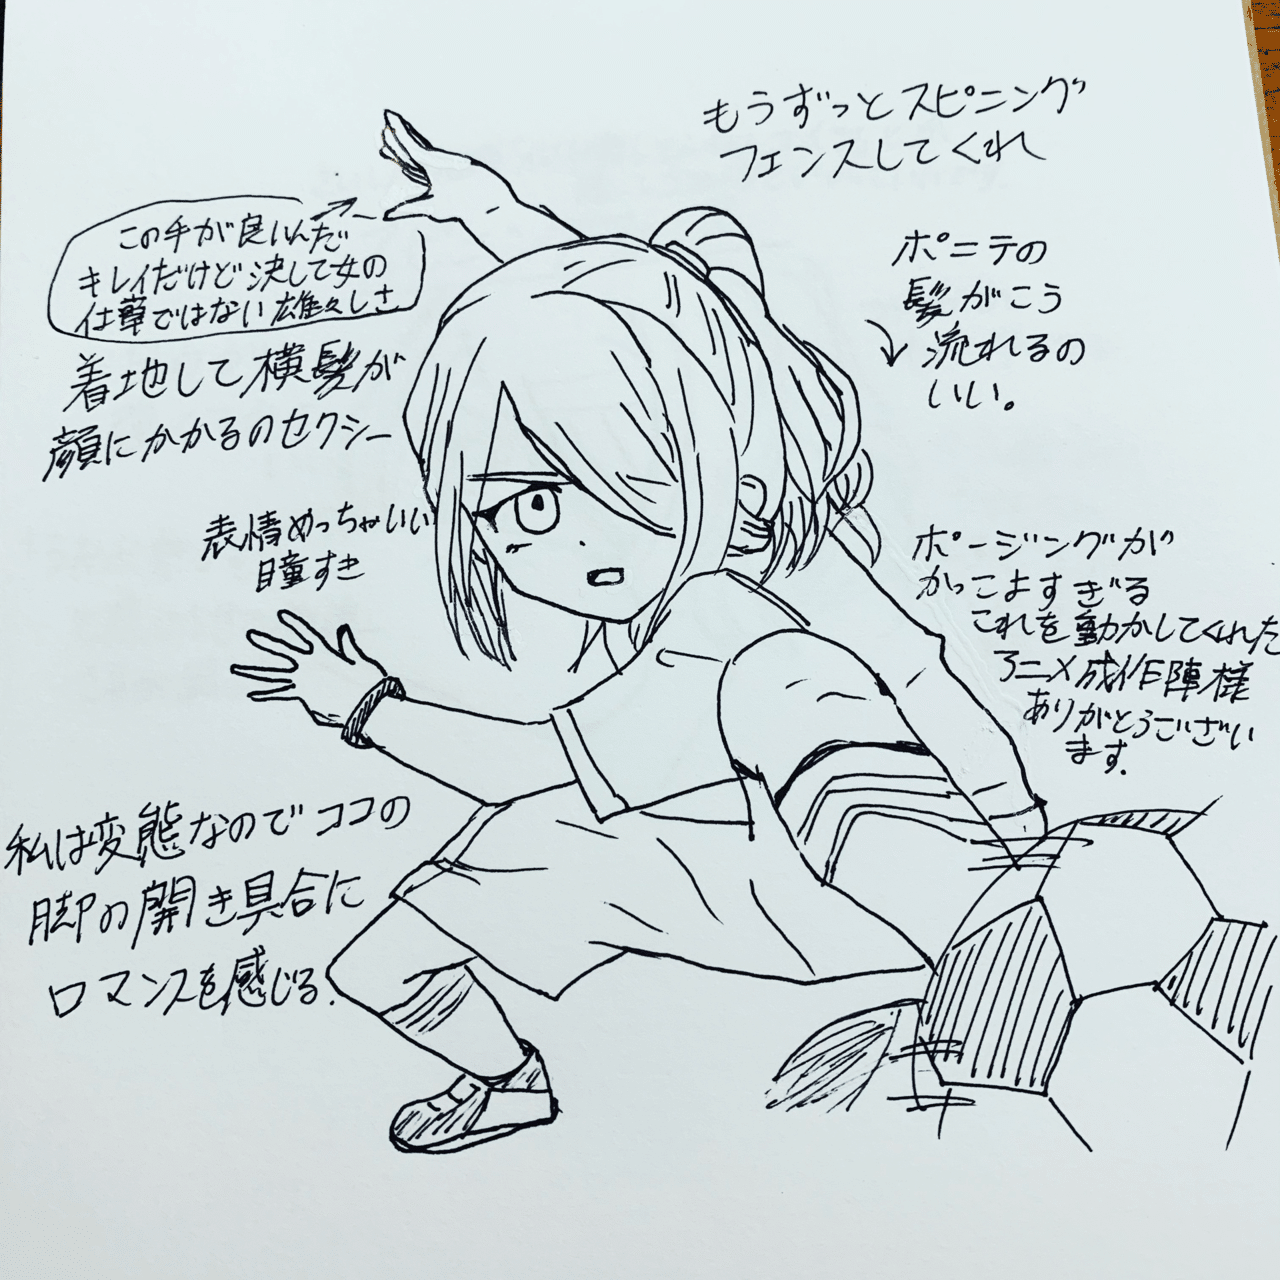 もうずっとスピニング
フェンスしてくれ
この手が良いんだ
キレイだけど決して女の
仕草ではない雄々しさ
ポニテの
髪がこう
流れるの
いい。
着地して横髪が
顔にかかるのセクシー
表情めっちゃいい
瞳すき
ポージングが
かっこよすぎる
これを動かしてくれた
アニメ成作陣様
ありがとうござい
ます.
私は変態なのでココの
脚の開き具合に
ロマンスを感じる.